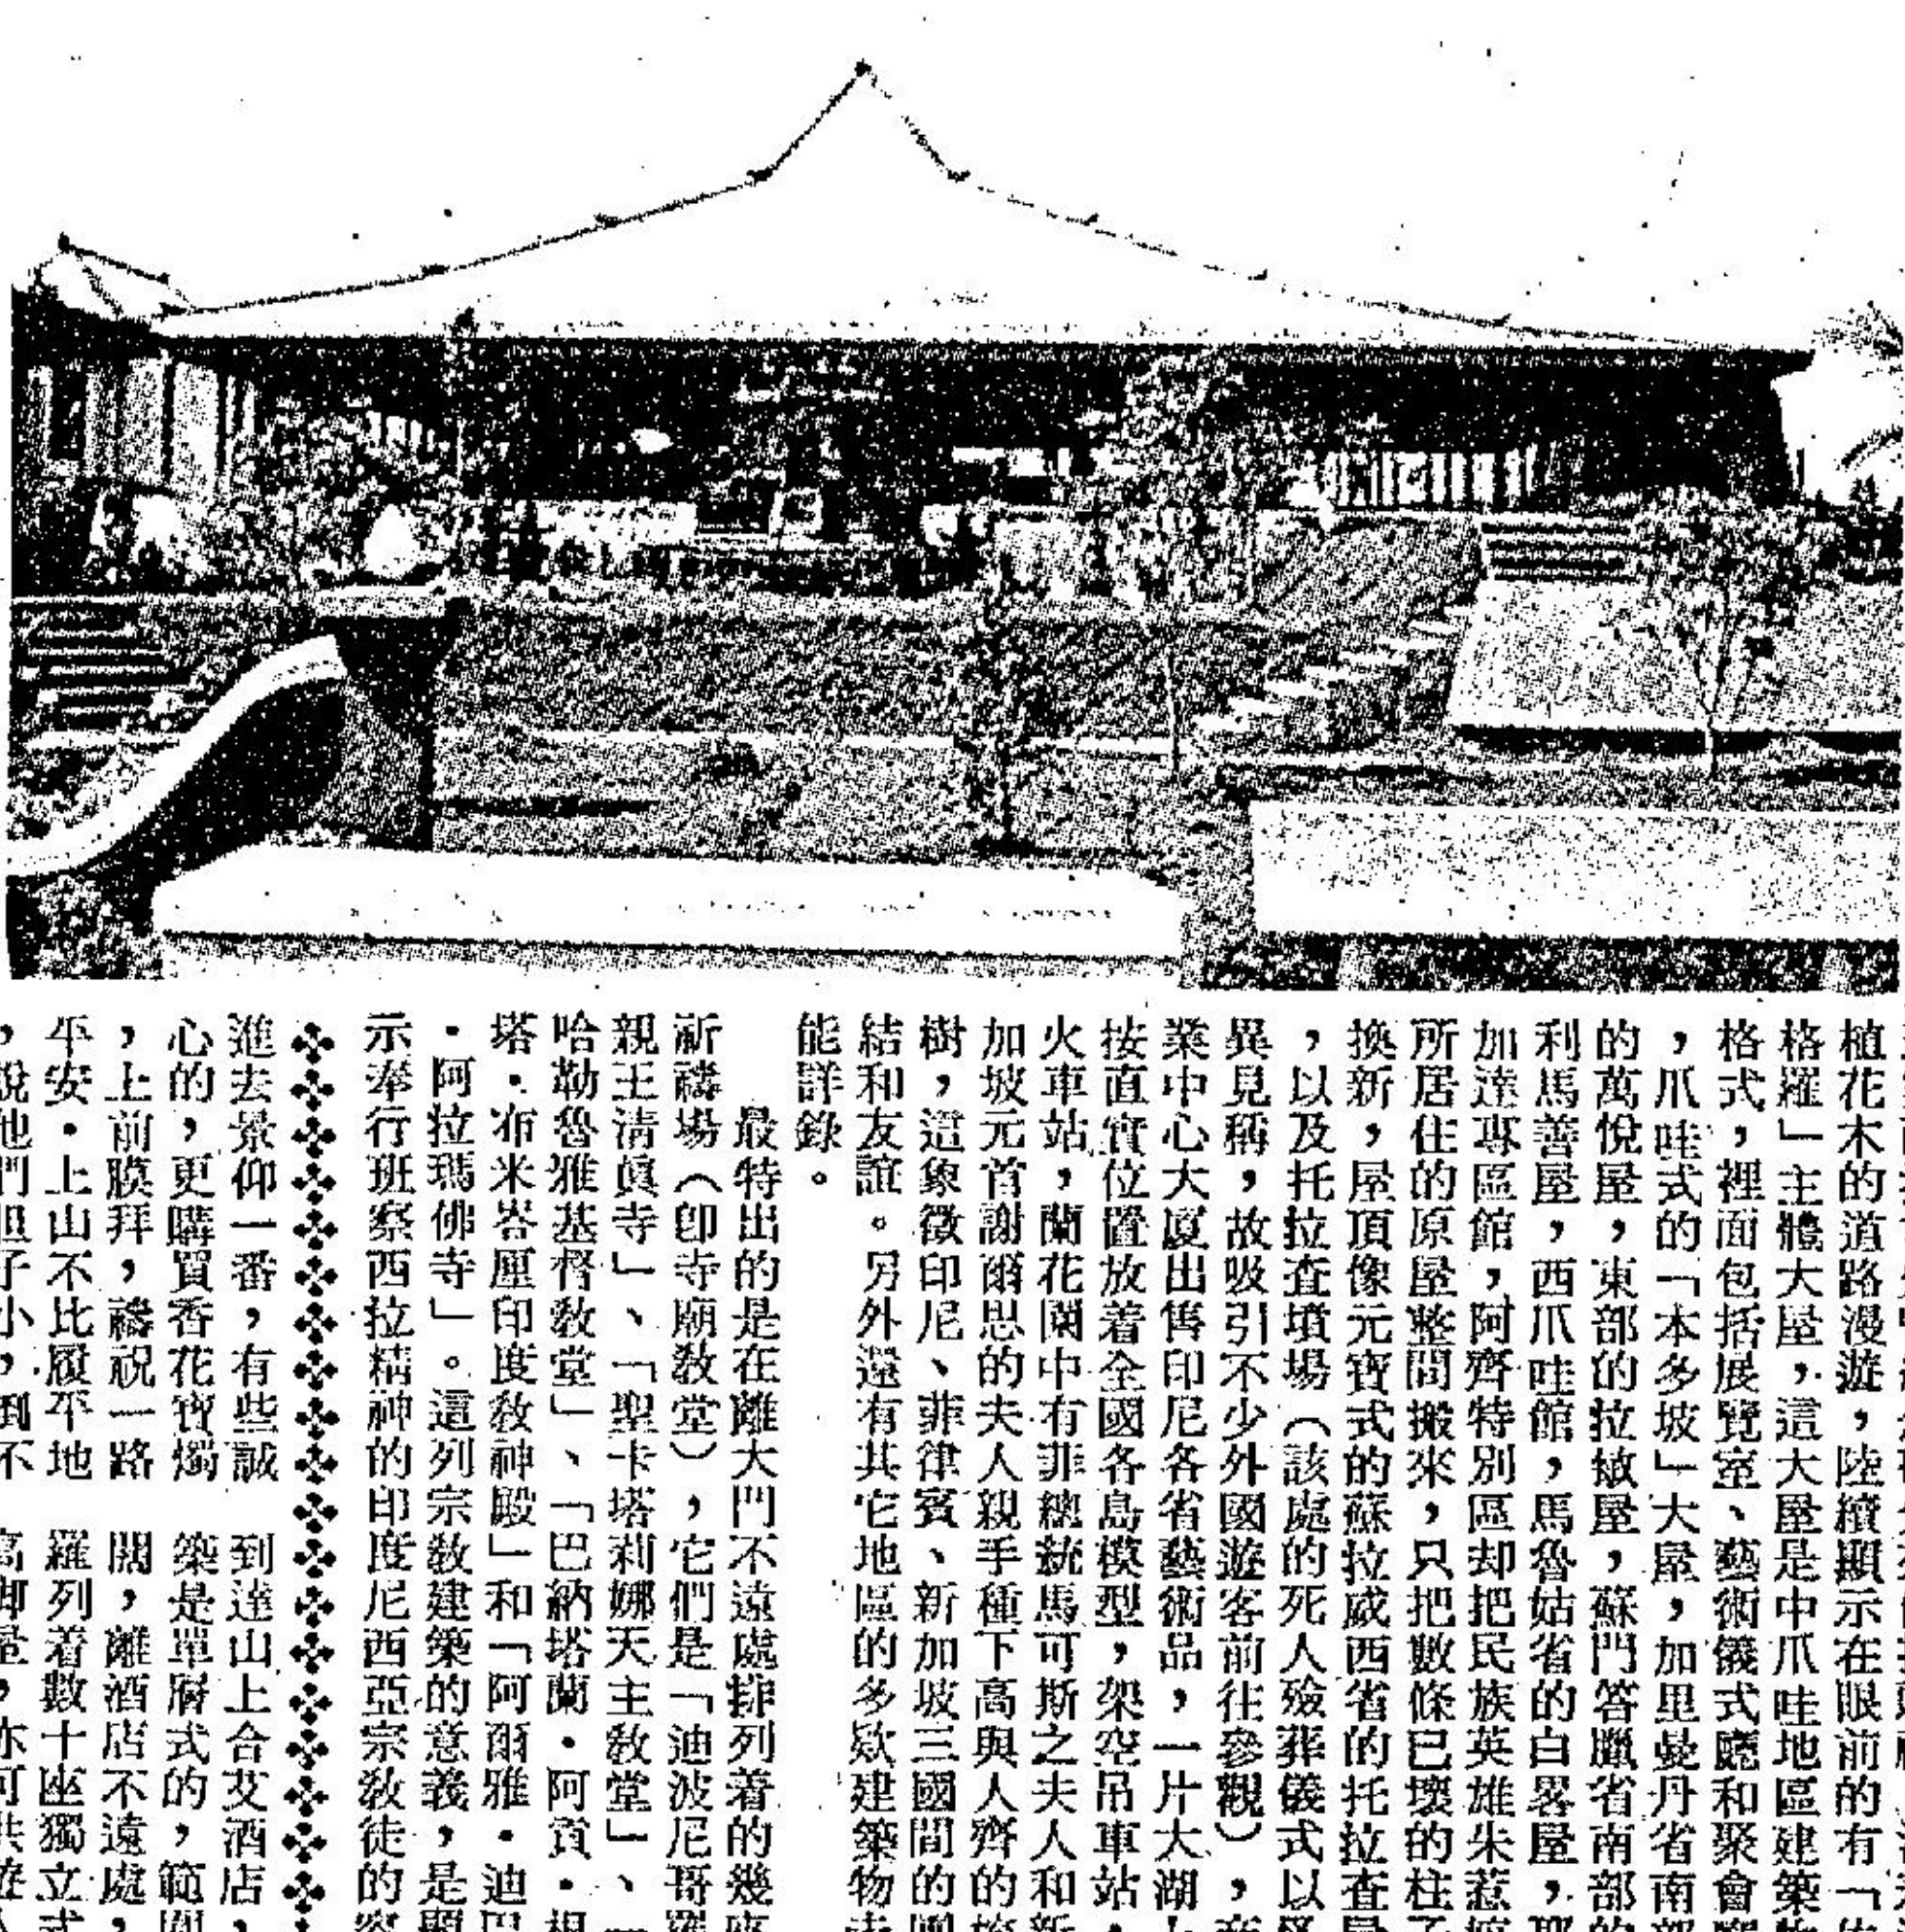 植花木的道路漫遊，陸續顯示在眼前的有「
格羅」主體大屋，這大屋是中爪哇地區建築
格式，裡面包括展覽室、藝術儀式廳和聚會
，爪哇式的「本多坡」大屋，加里曼丹省南部
的萬悅屋，東部的拉敏屋，蘇門答臘省南部的
利馬善屋，西爪哇館，馬魯姑省的白畧屋，
加達專區館，阿齊特別區却把民族英雄朱惹
所居住的原屋整間搬來，只把數條已壞的柱子
換新，屋頂像元寶式的蘇拉威西省的托拉查屋
，以及托拉查墳場（該處的死人殮葬儀式以怪
異見稱，故吸引不少外國遊客前往參觀），商
業中心大廈出售印尼各省藝術品，一片大湖
按直實位置放着全國各島模型，架空吊車站，
火車站，蘭花園中有菲總統馬可斯之夫人和新
加坡元首謝爾思的夫人親手種下高與人齊的
樹，這象徵印尼、菲律賓、新加坡三國間的團
結和友誼。另外還有其它地區的多欵建築物
能詳錄。
最特出的是在離大門不遠處排列着的幾座
祈禱場（卽寺廟敎堂），它們是「迪波尼哥羅
親王清眞寺」、「聖卡塔莉娜天主敎堂」、「
哈勒魯雅基督敎堂」、「巴納塔蘭・阿賓・
塔・布米峇厘印度敎神殿」和「阿爾雅・迪巴
・阿拉瑪佛寺」。這列宗敎建築的意義，是顯
示奉行班察西拉精神的印度尼西亞宗敎徒的
進去景仰一番，有些誠
心的，更購買香花寶燭
，上前膜拜，禱祝一路
平安・上山不比履平地
，說他們胆子小，倒不
到達山上合艾酒店，
築是單層式的，範圍
闊，離酒店不遠處，
羅列着數十座獨立式
高脚屋，亦可供遊人